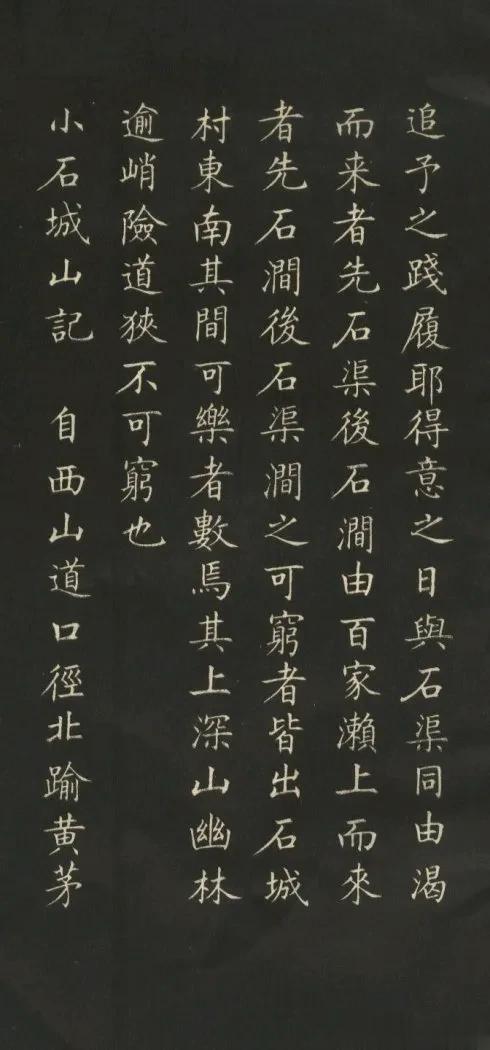 追予之踐履耶得意之日與石渠同由渴
而来者先石渠後石澗由百家瀨上而來
者先石澗後石渠澗之可窮者皆出石城
村東南其間可樂者數焉其上深山幽林
逾峭險道狹不可窮也
小石城山記　自西山道口徑北踰黃茅